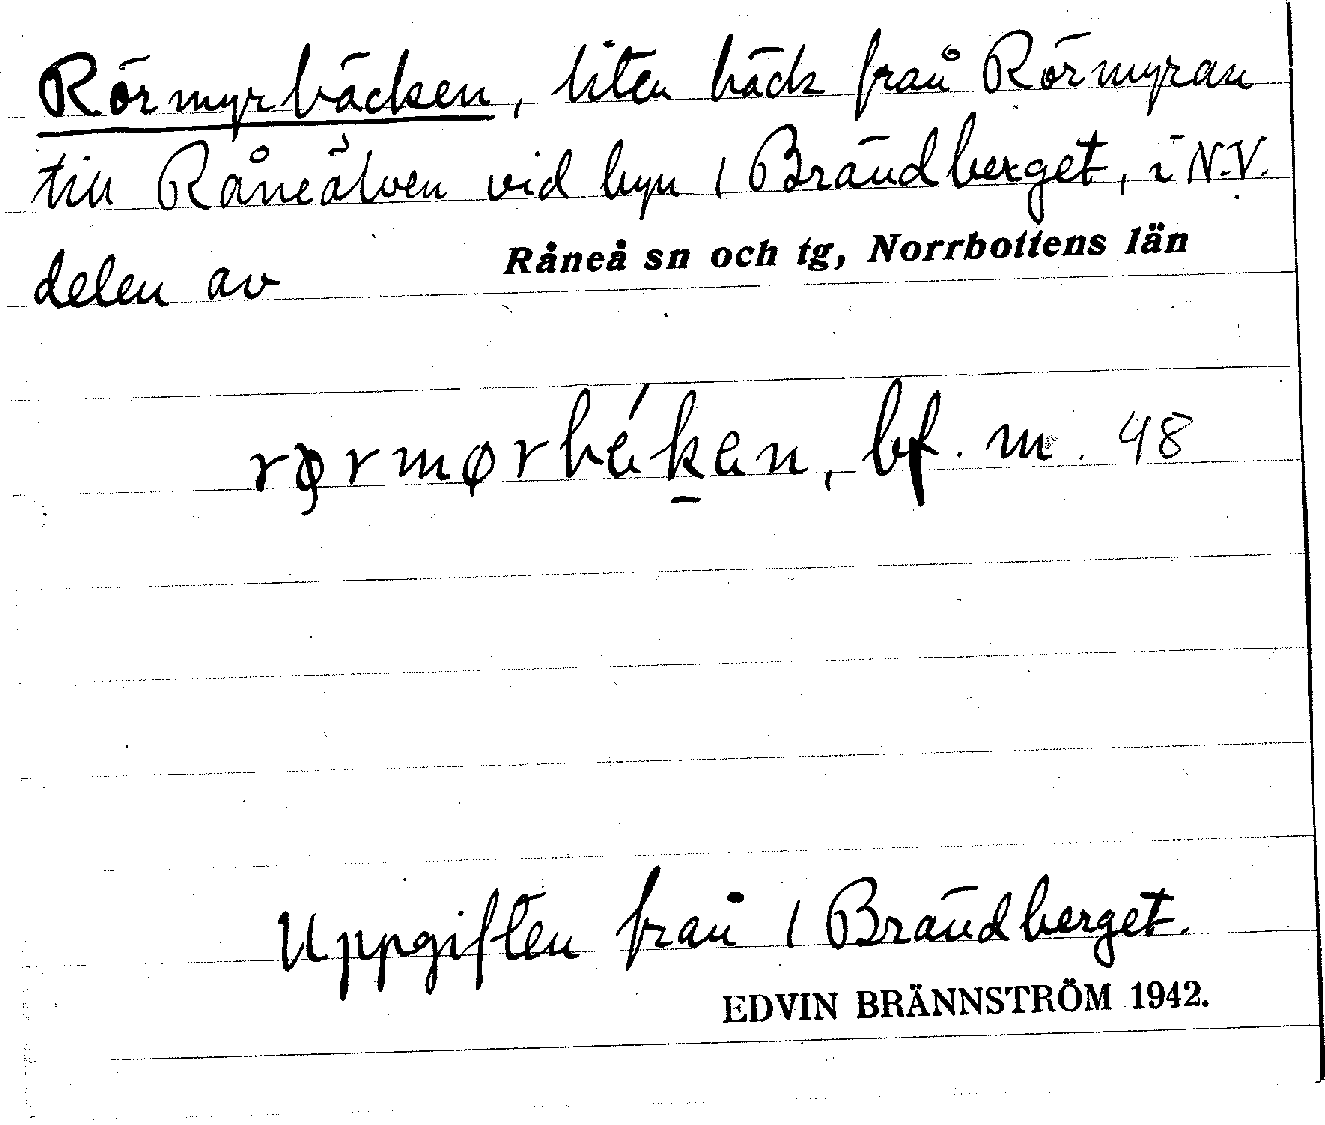 Rörmyrbäcken, liten bäck från Rörmyran
till Råneälven vid byn / Brändberget, i N.V.
delen av Råneå sn och tg, Norrbottens län
bf. m. 48
Uppgiften från / Brändberget.
EDVIN BRÄNNSTRÖM 1942.